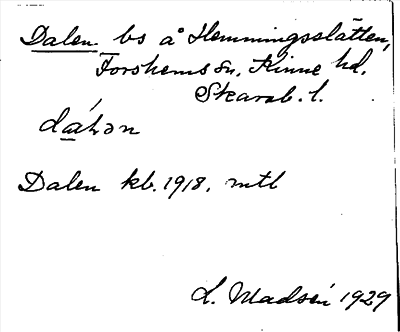 Dalen bs å Hemmingsslätten,
Forshems sn. Kinne hd.
Skarab. l.
Dalen kb. 1918. mtl
L. Madsén 1929